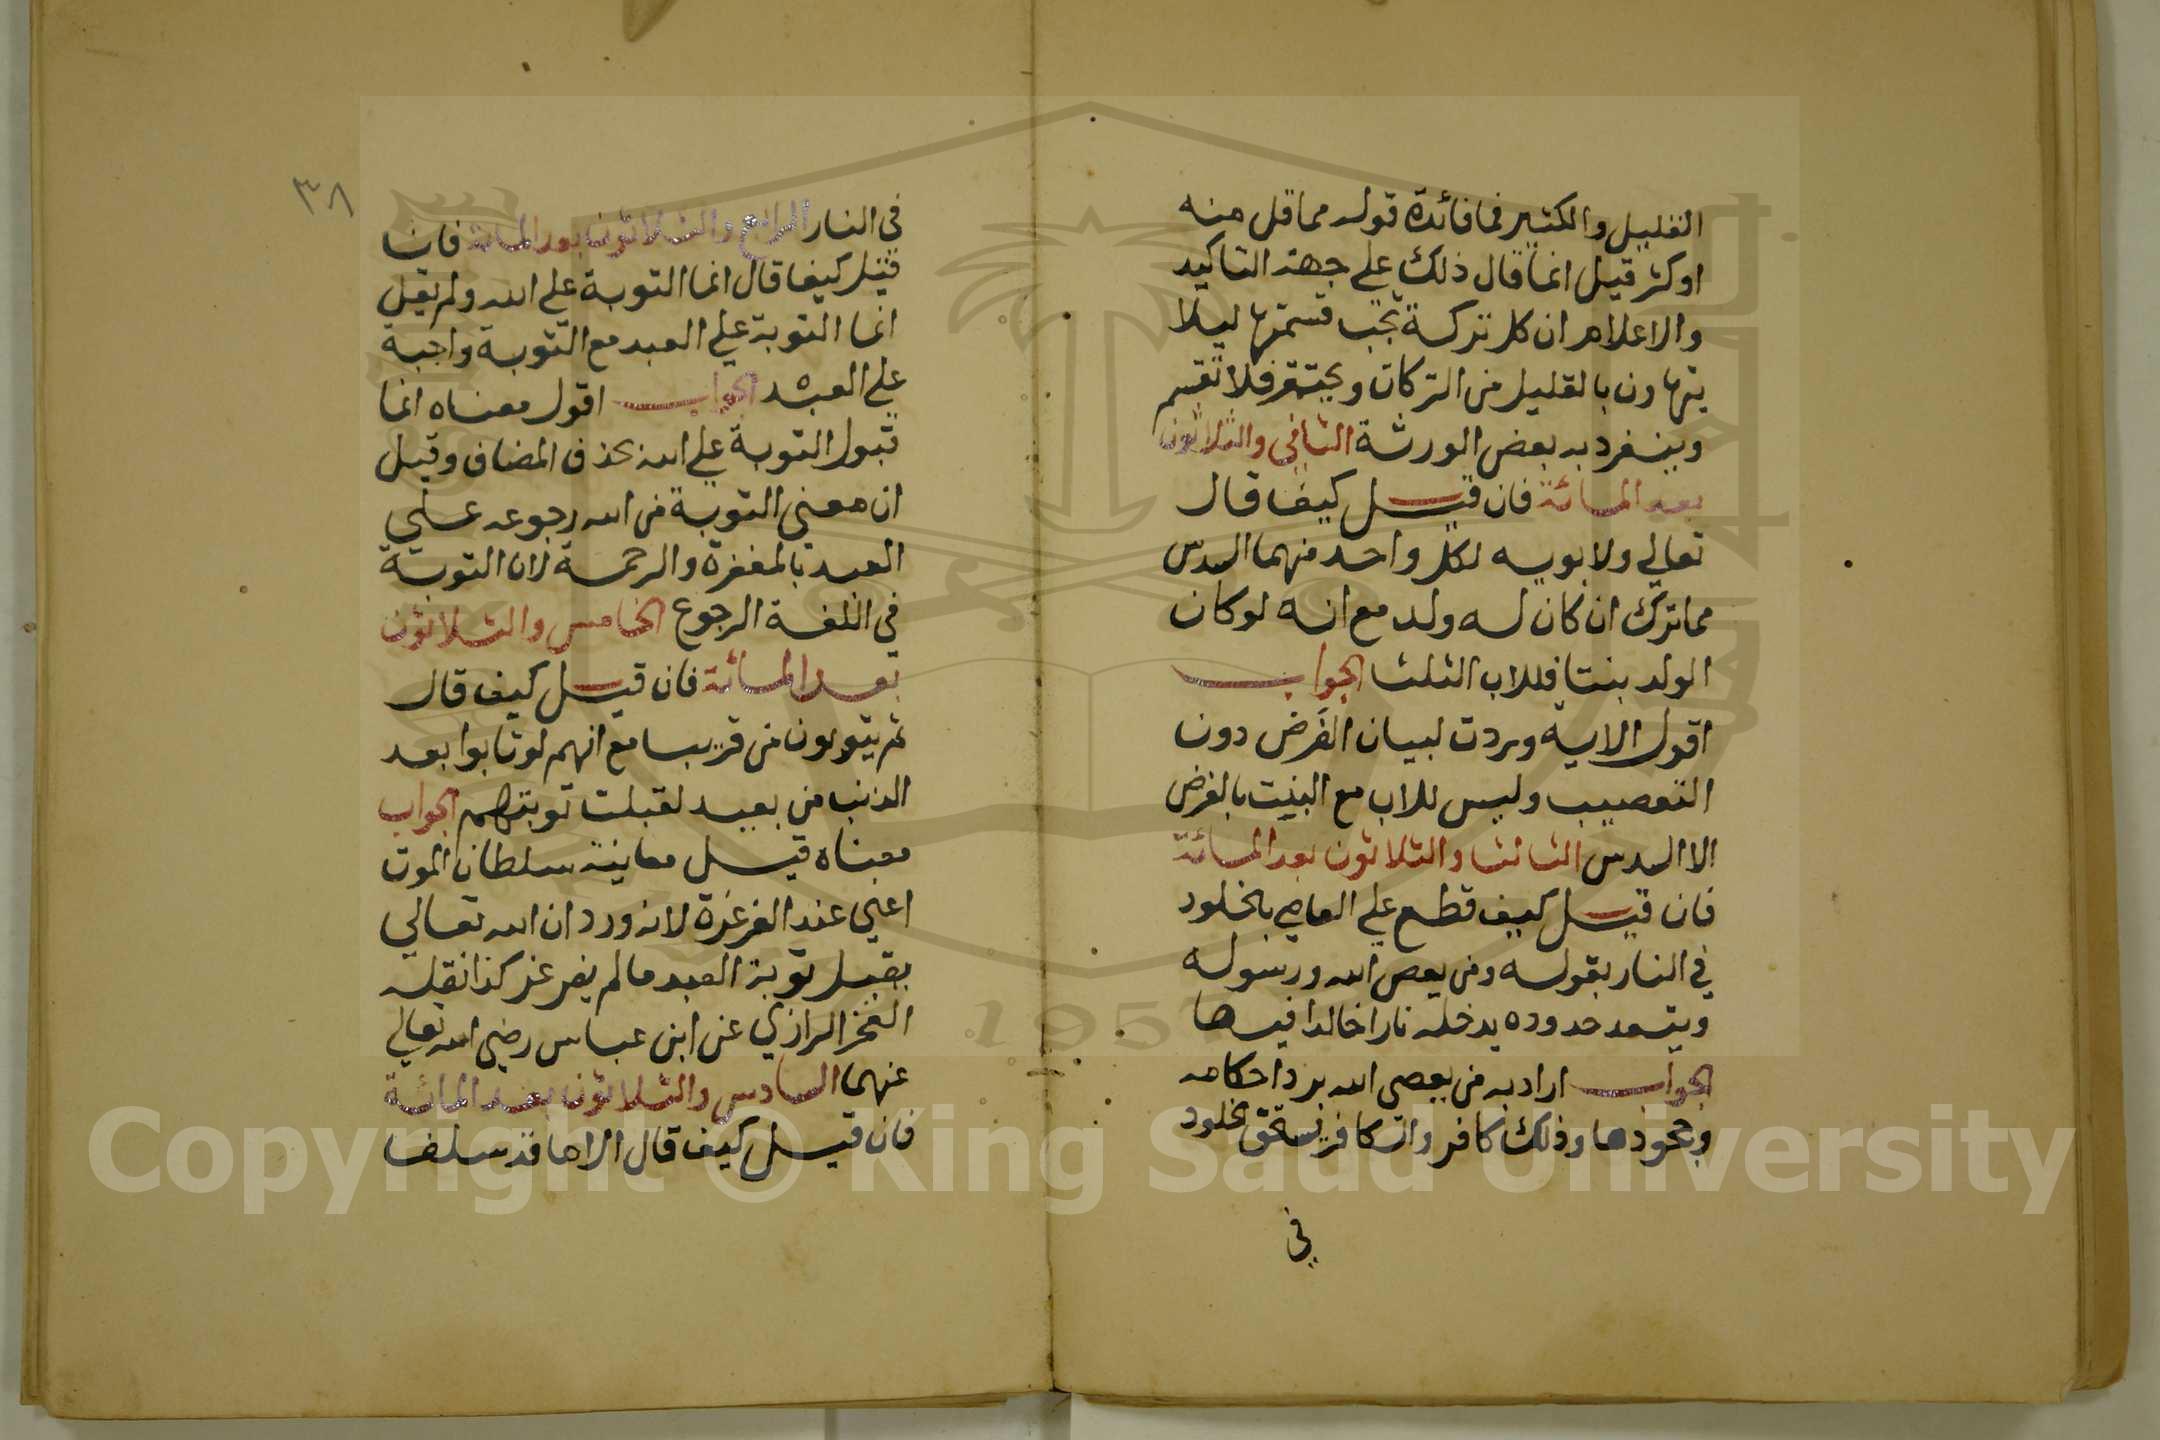 القليل والكثير فما فائدة قوله مما قل منه
اوكثر قيل انما قال ذلك علي جهة التاكيد
والاعلام ان كل تركة تجب قسمتها ليلا
يتهاون بالقليل من التركات ويحتقر فلا تقسم
وينفرد به بعض الورثة الثاني والثلاثون
بعد المائة فان قيل كيف قال
تعالي ولابويه لكل واحد منهما السدس
مما ترك ان كان له ولد مع انه لو كان
الولد بنتا فللاب الثلث الجواب
اقول الاية وردت لبيان الفرض دون
التعصيب وليس للاب مع البنت بالفرض
الا السدس الثالث والثلاثون بعد المائة
فان قيل كيف قطع علي العاصي بالخلود
في النار بقوله ومن يعص الله ورسوله
ويتعد حدوده يدخله نارا خالدا فيها
الجواب اراد به من يعصي الله برد احكامه
وجحودها وذلك كافر والكافر يستحق الخلود
في
٣٨
في النار الرابع والثلاثون بعد المائة فان
قيل كيف قال انما التوبة علي الله ولم يقل
انما التوبة علي العبد مع التوبة واجبة
علي العبد الجواب اقول معناه انما
قبول التوبة علي الله بحذف المضاف وقيل
ان معني التوبة من الله رجوعه علي
العبد بالمغفرة والرحمة لان التوبة
في اللغة الرجوع الخامس والثلاثون
بعد المائة فان قيل كيف قال
ثم يتوبون من قريب مع انهم لو تابوا بعد
الذنب من بعيد لقبلت توبتهم الجواب
معناه قبل معاينة سلطان الموت
اعني عند الغرغرة لانه ورد ان الله تعالي
يقبل توبة العبد ما لم يغرغر كذا نقله
الفخر الرازي عن ابن عباس رضي الله تعالي
عنهما السادس والثلاثون بعد المائة
فان قيل كيف قال الا ما قد سلف
1957
Copyright © King Saud University